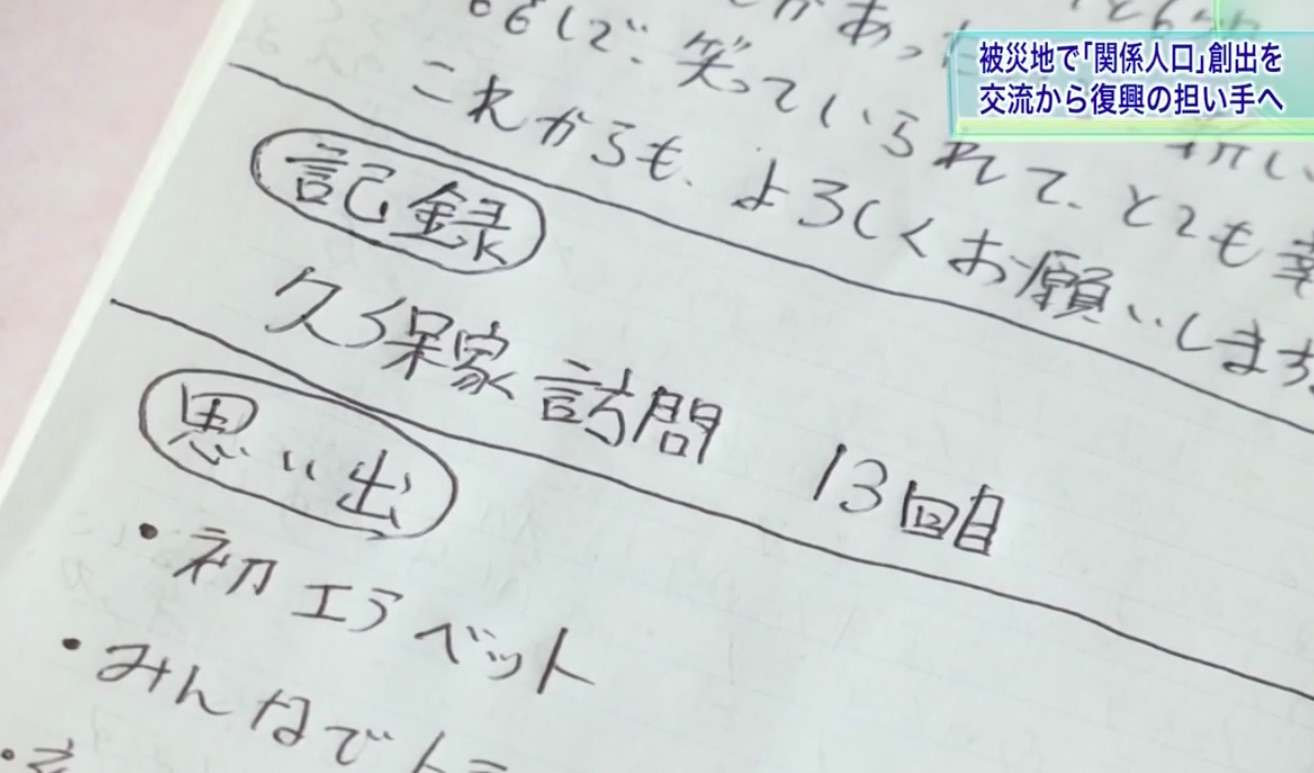 被災地で「関係人口」創出を
交流から復興の担い手へ
笑っていられて、とても幸
これからも、よろしくお願いします
記録
久保家訪問 13回目
思い出
・初エアベット
・みんなで